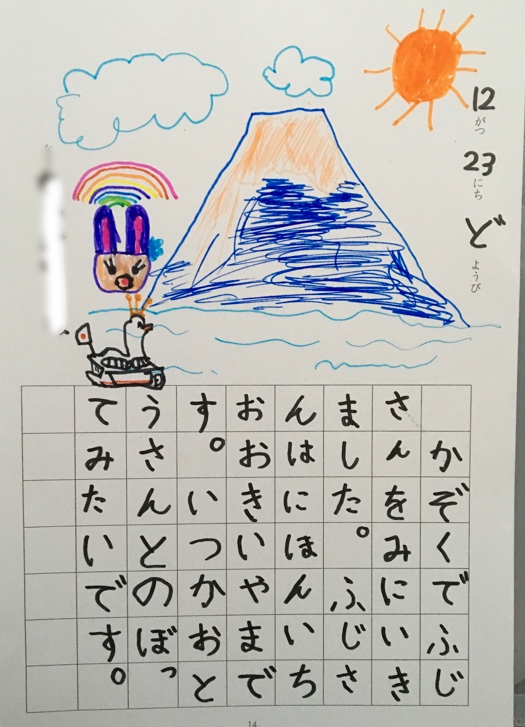 12がつ
23にち
どようび
かぞくでふじ
さんをみにいき
ました。ふじさ
んはにほんいち
おおきいやまで
す。いつかおと
うさんとのぼっ
てみたいです。
14